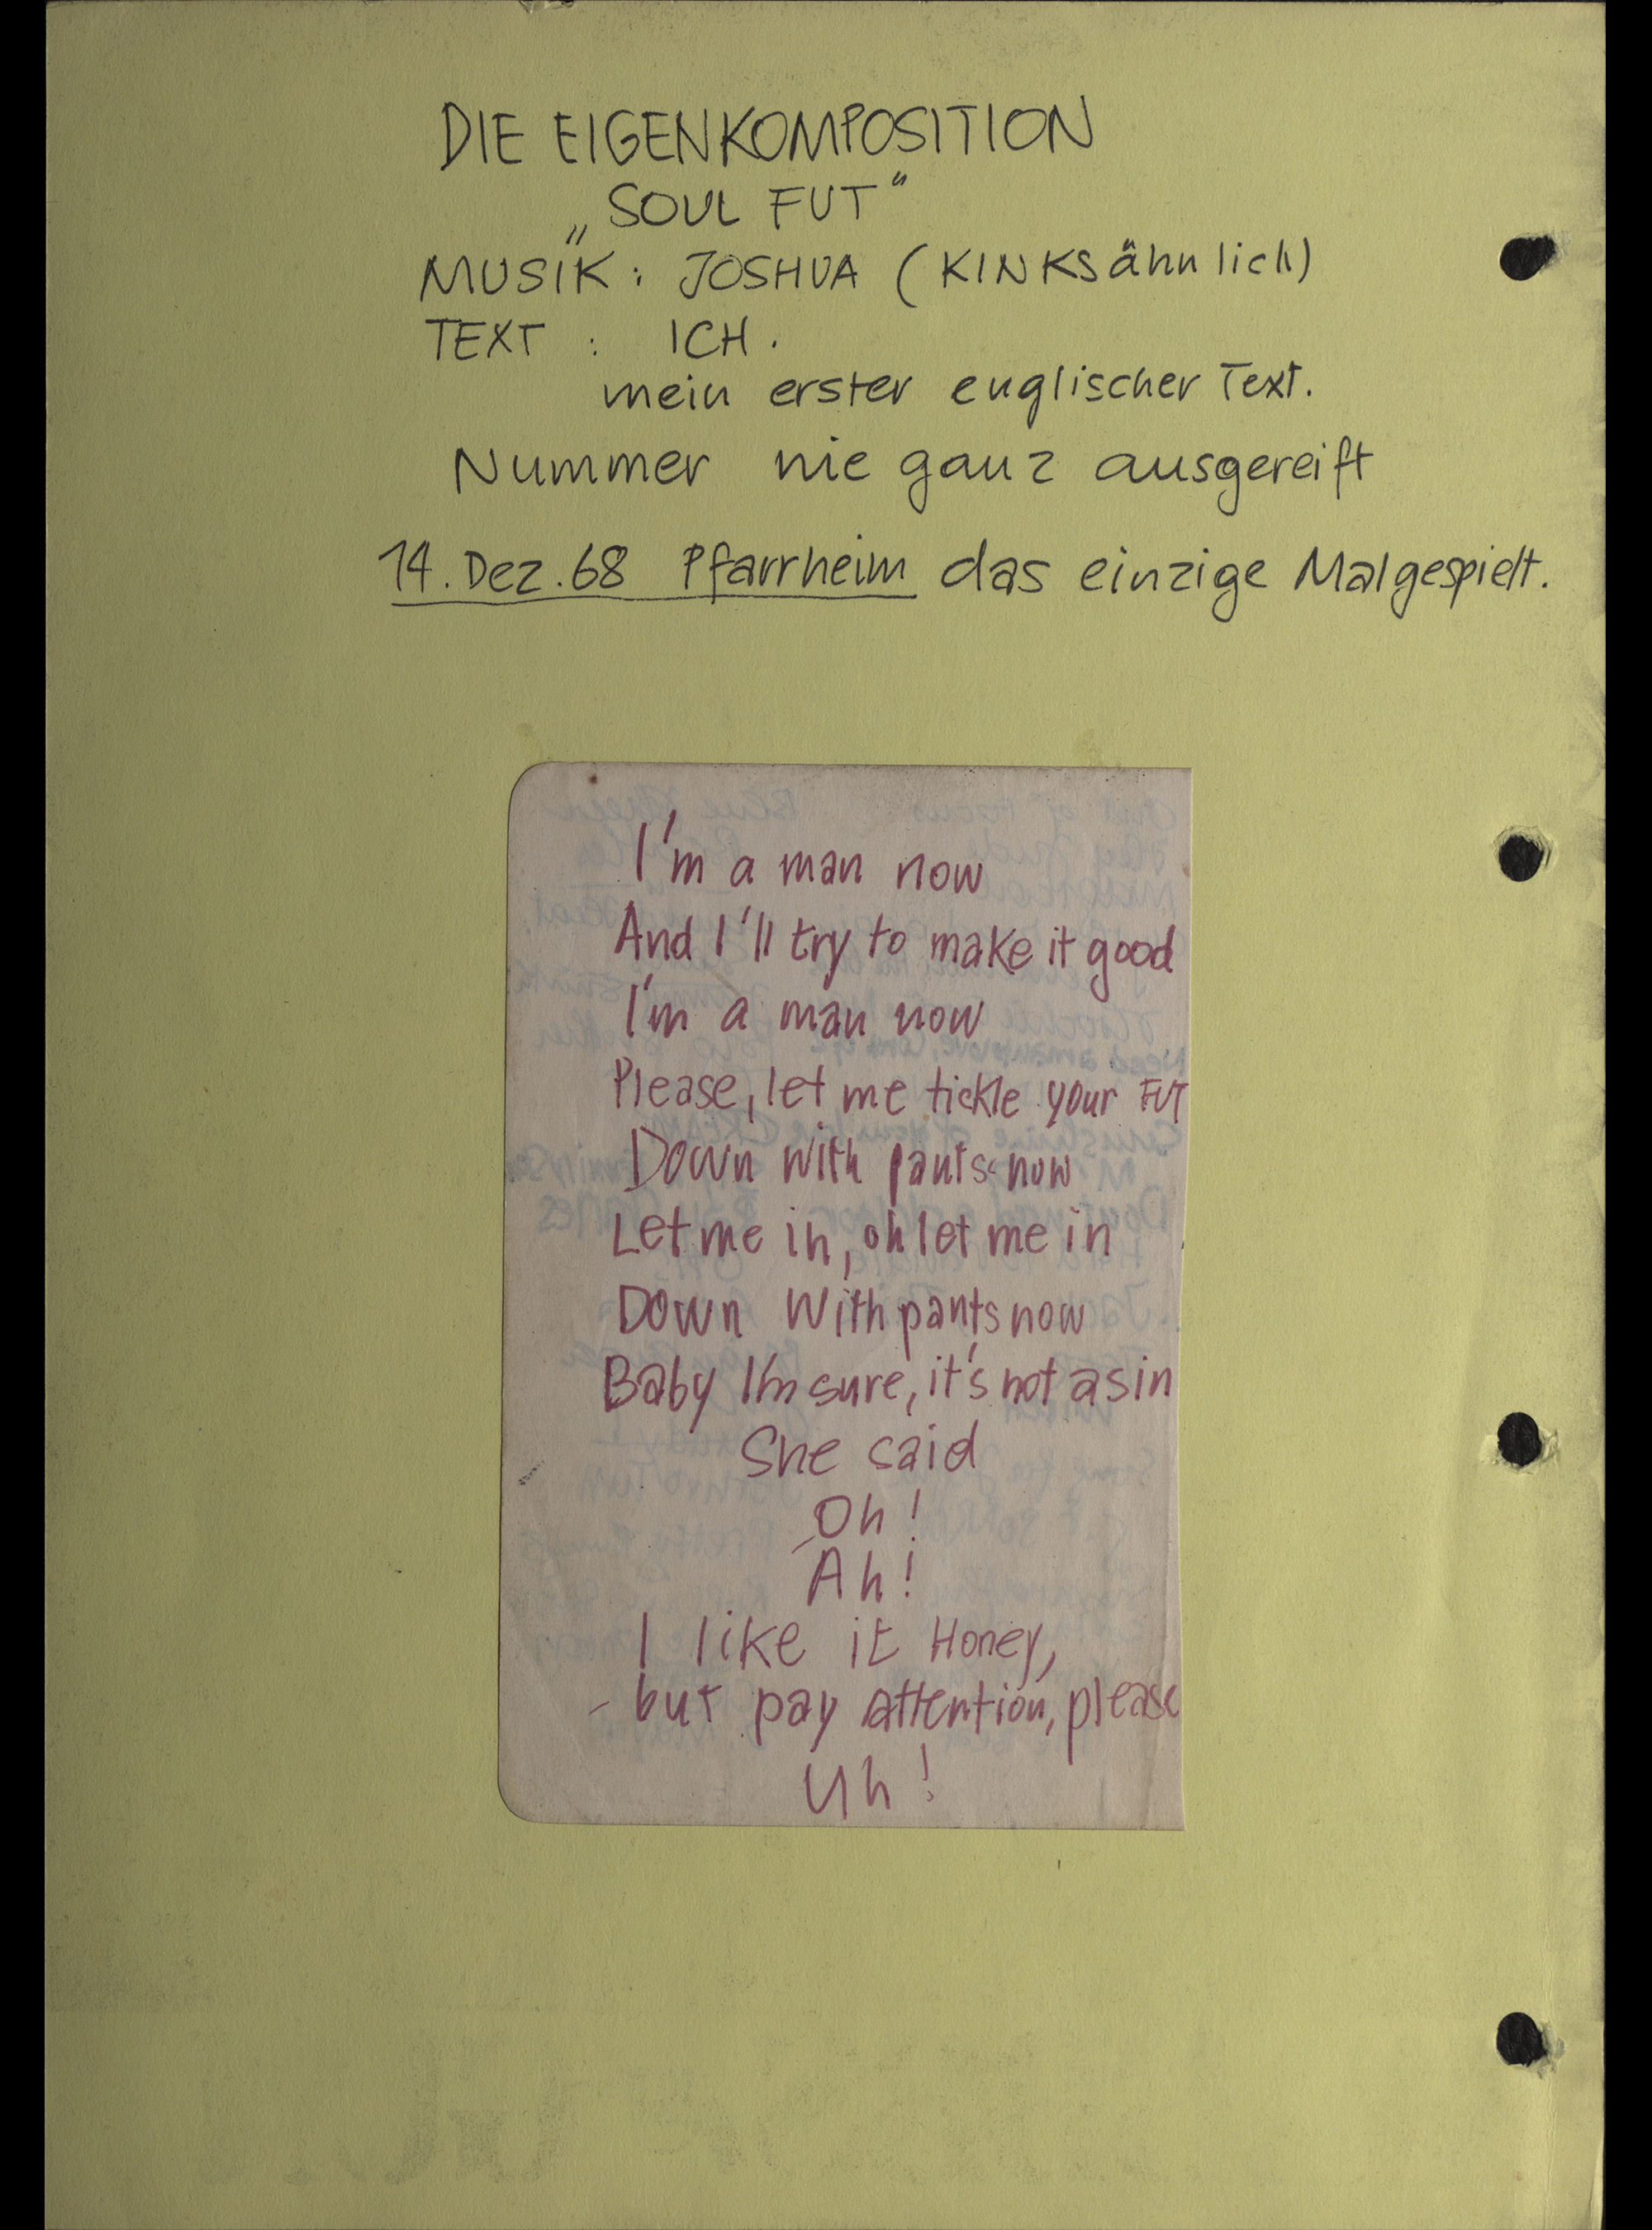 DIE EIGENKOMPOSITION
„SOUL FUT“
MUSIK: JOSHUA (KINKSähnlich)
TEXT: ICH.
mein erster englischer Text.
Nummer nie ganz ausgereift
14. Dez. 68 Pfarrheim das einzige Mal gespielt.
I'm a man now
And I'll try to make it good
I'm a man now
Please, let me tickle your FUT
Down with pants now
Let me in, oh let me in
Down With pants now
Baby I'm sure, it's not a sin
She said
Oh!
Ah!
I like it Honey,
- but pay attention, please
Uh!